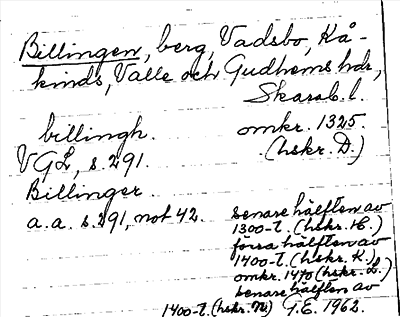 Billingen, berg, Vadsbo, Kå-
kinds, Valle och Gudhems hdr,
Skarab. l.
billingh. omkr. 1325.
VGL, s. 291. (hskr. D.)
Billinger.
a.a. s. 291, not 42. senare hälften av
1300-t. (hskr. H.)
förra hälften av
1400-t. (hskr. K.)
omkr. 1470 (hskr. L.)
senare hälften av
1400-t. (hskr. M) G.E. 1962.